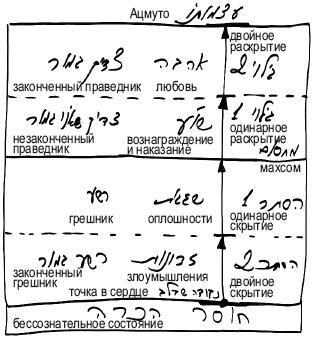 Ацмуто עצמותו
двойное
раскрытие
צדיק גמור אהבה גילוי 2
законченный праведник любовь
צדיק שאינו גמור שו"ע גילוי 1
незаконченный
праведник
вознаграждение
и наказание
одинарное
раскрытие
מחסום
махсом
רשע שגגות הסתר 1
грешник оплошности одинарное
скрытие
רשע גמור זדונות הסתר 2
законченный
грешник
злоумышления двойное
скрытие
точка в сердце נקודה שבלב
חוסר הכרה
бессознательное состояние